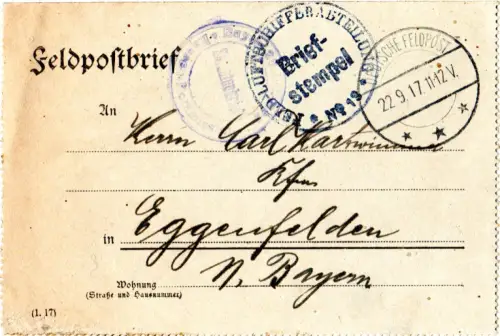 Feldpostbrief
FELDLUFTSCHIFFERABTEILUNG
Brief-
stempel
* No 19 *
FELDPOST
22.9.17.11-12V.
An
Herrn Carl
Kfm
in Eggenfelden
N. Bayern
Wohnung
(Straße und Hausnummer)
(1. 17)